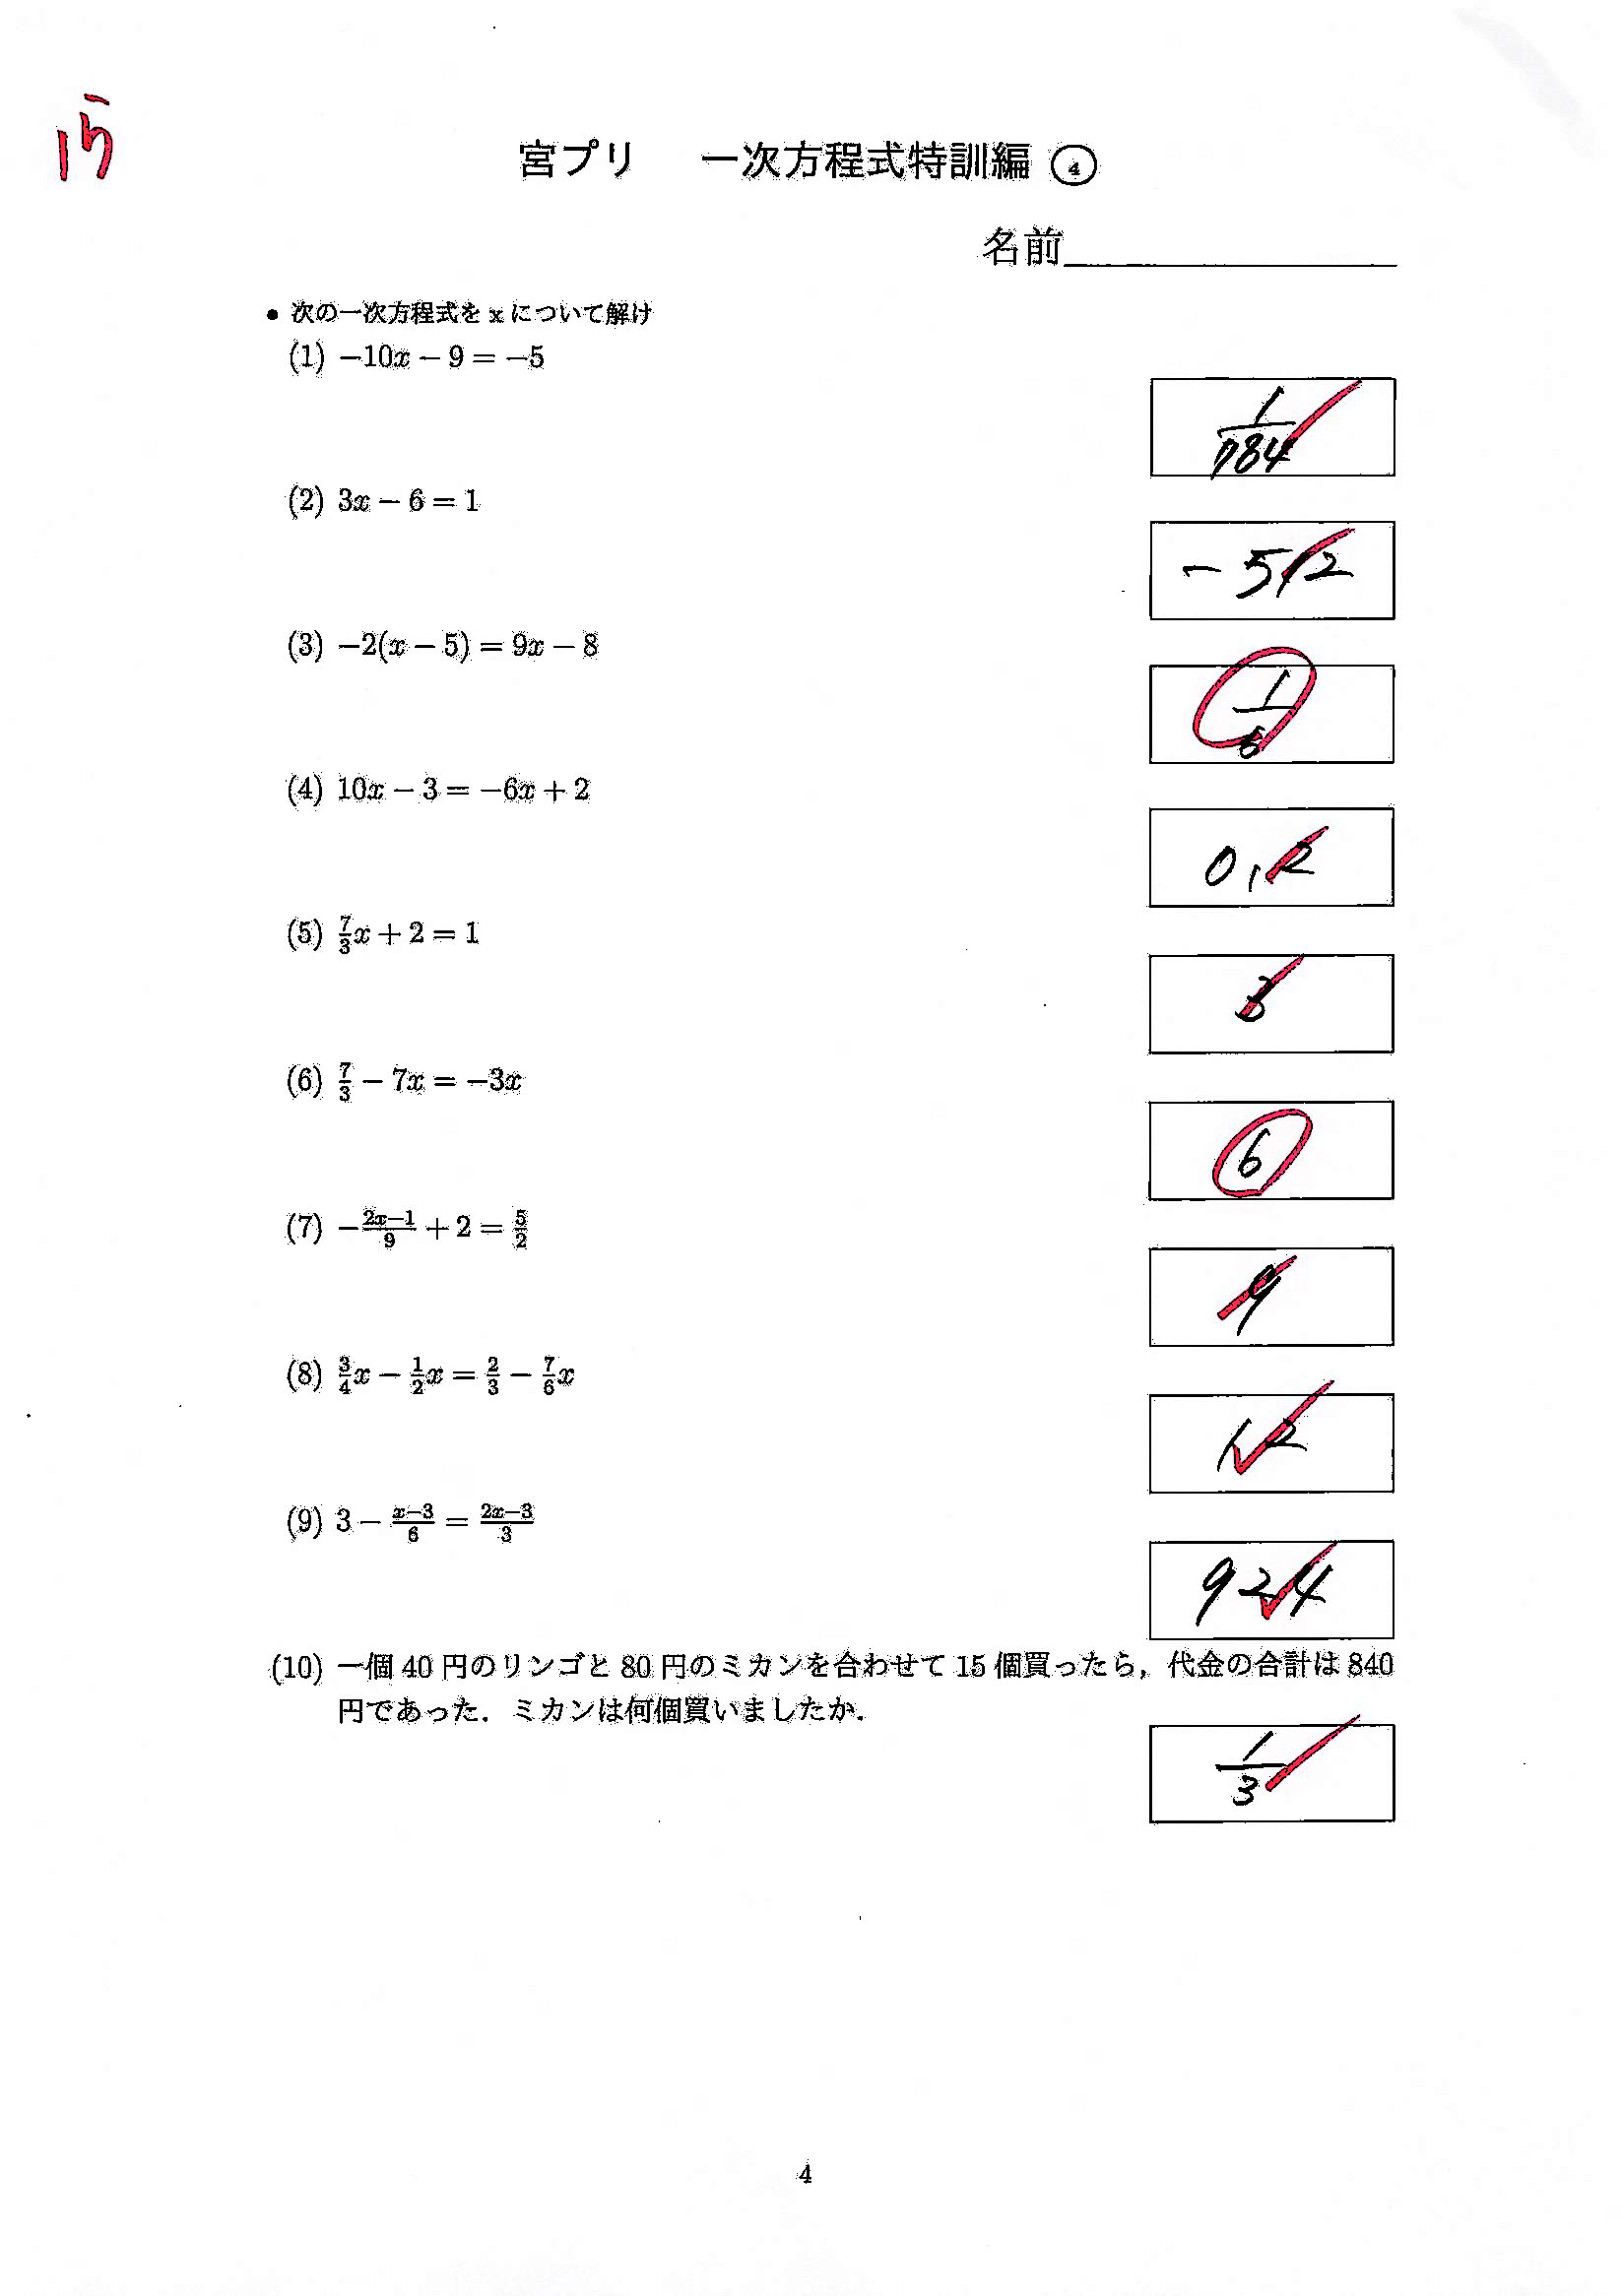 15
宮プリ 一次方程式特訓編 ④
名前
• 次の一次方程式を x について解け
(1) −10x − 9 = −5
1/784
(2) 3x − 6 = 1
(3) −2(x − 5) = 9x − 8
(4) 10x − 3 = −6x + 2
(5) 7/3 x + 2 = 1
3
(6) 7/3 − 7x = −3x
6
(7) −(2x−1)/9 + 2 = 5/2
9
(8) 3/4 x − 1/2 x = 2/3 − 7/6 x
12
(9) 3 − (x−3)/6 = (2x−3)/3
924
(10) 一個 40 円のリンゴと 80 円のミカンを合わせて 15 個買ったら,代金の合計は 840
円であった.ミカンは何個買いましたか.
1/3
4